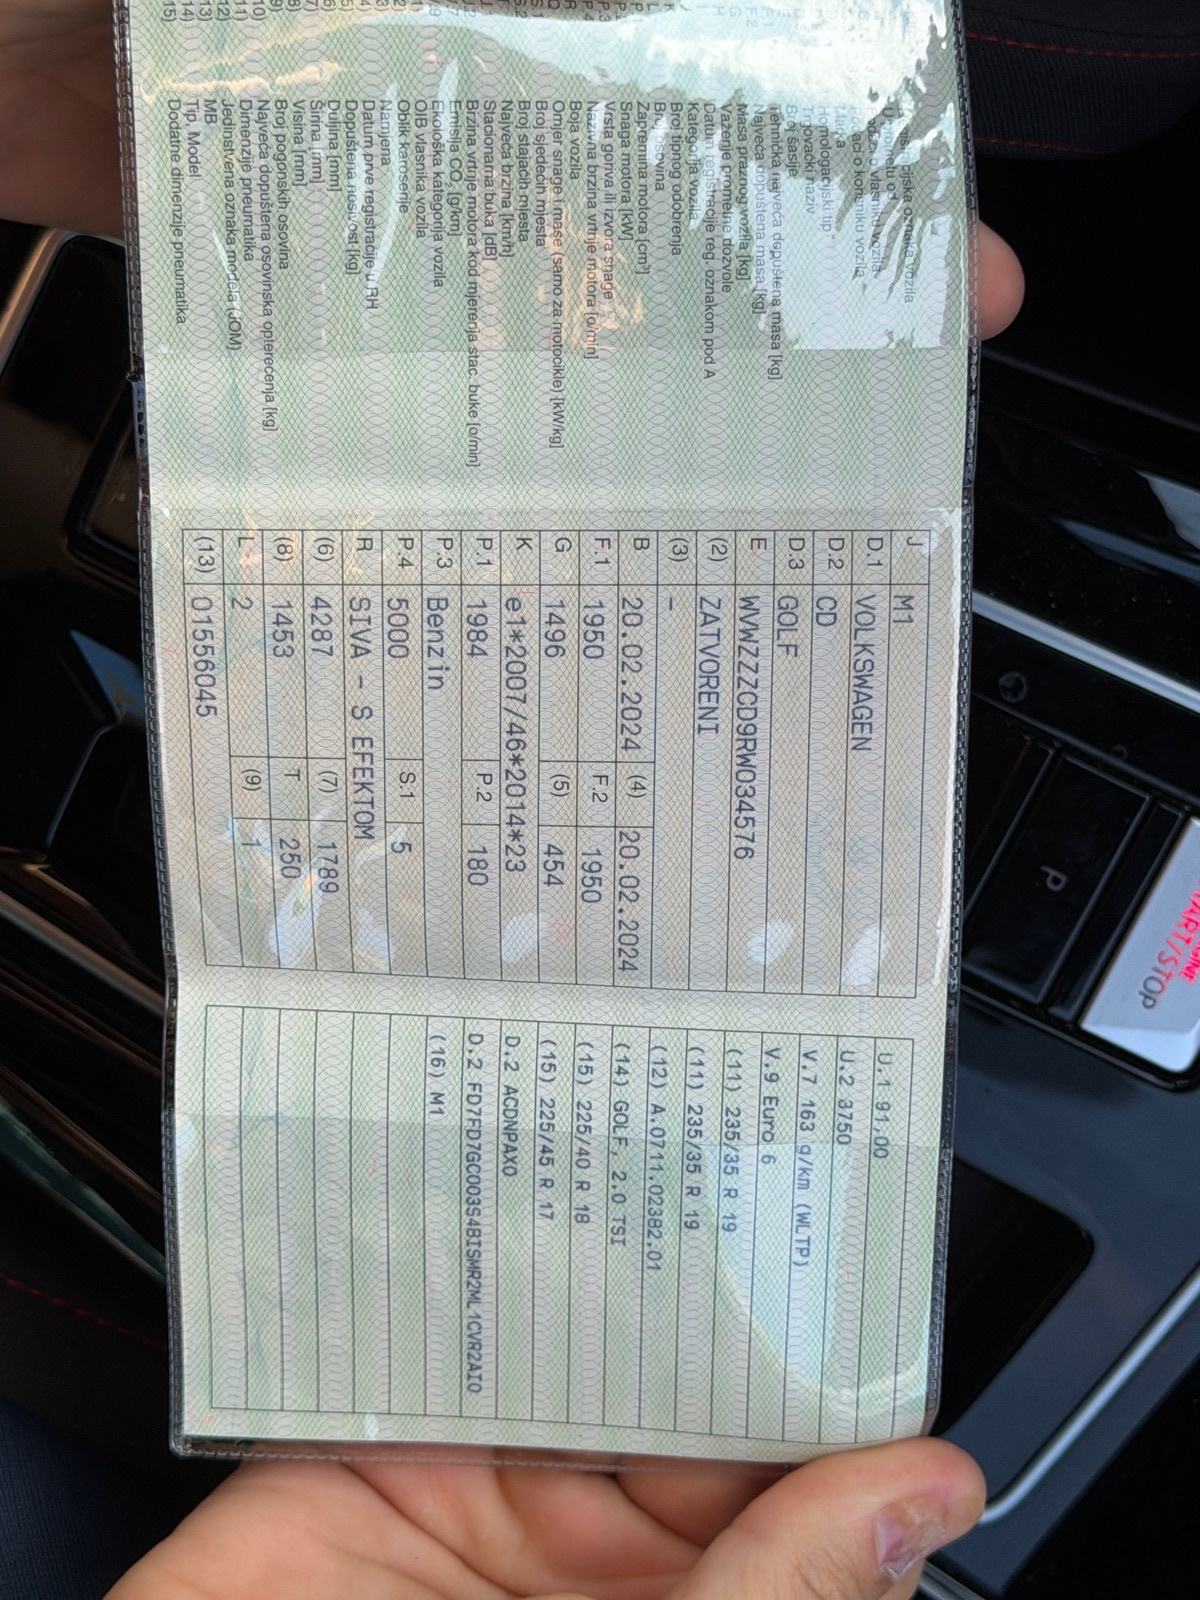 cijska oznaka vozila
vlasniku vozila
aci o korisniku vozila
Homologacijski tip
Trgovački naziv
Broj šasije
Tehnička najveća dopuštena masa [kg]
Najveća dopuštena masa [kg]
Masa praznog vozila [kg]
Važenje prometne dozvole
Datum registracije reg. oznakom pod A
Kategorija vozila
Broj tipnog odobrenja
Broj osovina
Zapremina motora [cm³]
Snaga motora [kW]
Vrsta goriva ili izvora snage
Nazivna brzina vrtnje motora [o/min]
Boja vozila
Omjer snage i mase (samo za motocikle) [kW/kg]
Broj sjedećih mjesta
Broj stajaćih mjesta
Najveća brzina [km/h]
Stacionarna buka [dB]
Brzina vrtnje motora kod mjerenja stac. buke [o/min]
Emisija CO₂ [g/km]
Ekološka kategorija vozila
OIB vlasnika vozila
Oblik karoserije
Namjena
Datum prve registracije u RH
Dopuštena nosivost [kg]
Duljina [mm]
Širina [mm]
Visina [mm]
Broj pogonskih osovina
Najveća dopuštena osovinska opterećenja [kg]
Dimenzije pneumatika
Jedinstvena oznaka modela (JOM)
MB
Tip, Model
15) Dodatne dimenzije pneumatika
J M1
D.1 VOLKSWAGEN
D.2 CD
D.3 GOLF
E WVWZZZCD9RW034576
(2) ZATVORENI
(3) -
B 20.02.2024 (4) 20.02.2024
F.1 1950 F.2 1950
G 1496 (5) 454
K e1*2007/46*2014*23
P.1 1984 P.2 180
P.3 Benzin
P.4 5000 S.1 5
R SIVA - S EFEKTOM
(6) 4287 (7) 1789
(8) 1453 T 250
L 2 (9) 1
(13) 01556045
U.1 91,00
U.2 3750
V.7 163 g/km (WLTP)
V.9 Euro 6
(11) 235/35 R 19
(11) 235/35 R 19
(12) A.0711.02382.01
(14) GOLF, 2.0 TSI
(15) 225/40 R 18
(15) 225/45 R 17
D.2 ACDNPAX0
D.2 FD7FD7GC003S4BISMR2ML1CVR2AI0
(16) M1
P
START/STOP